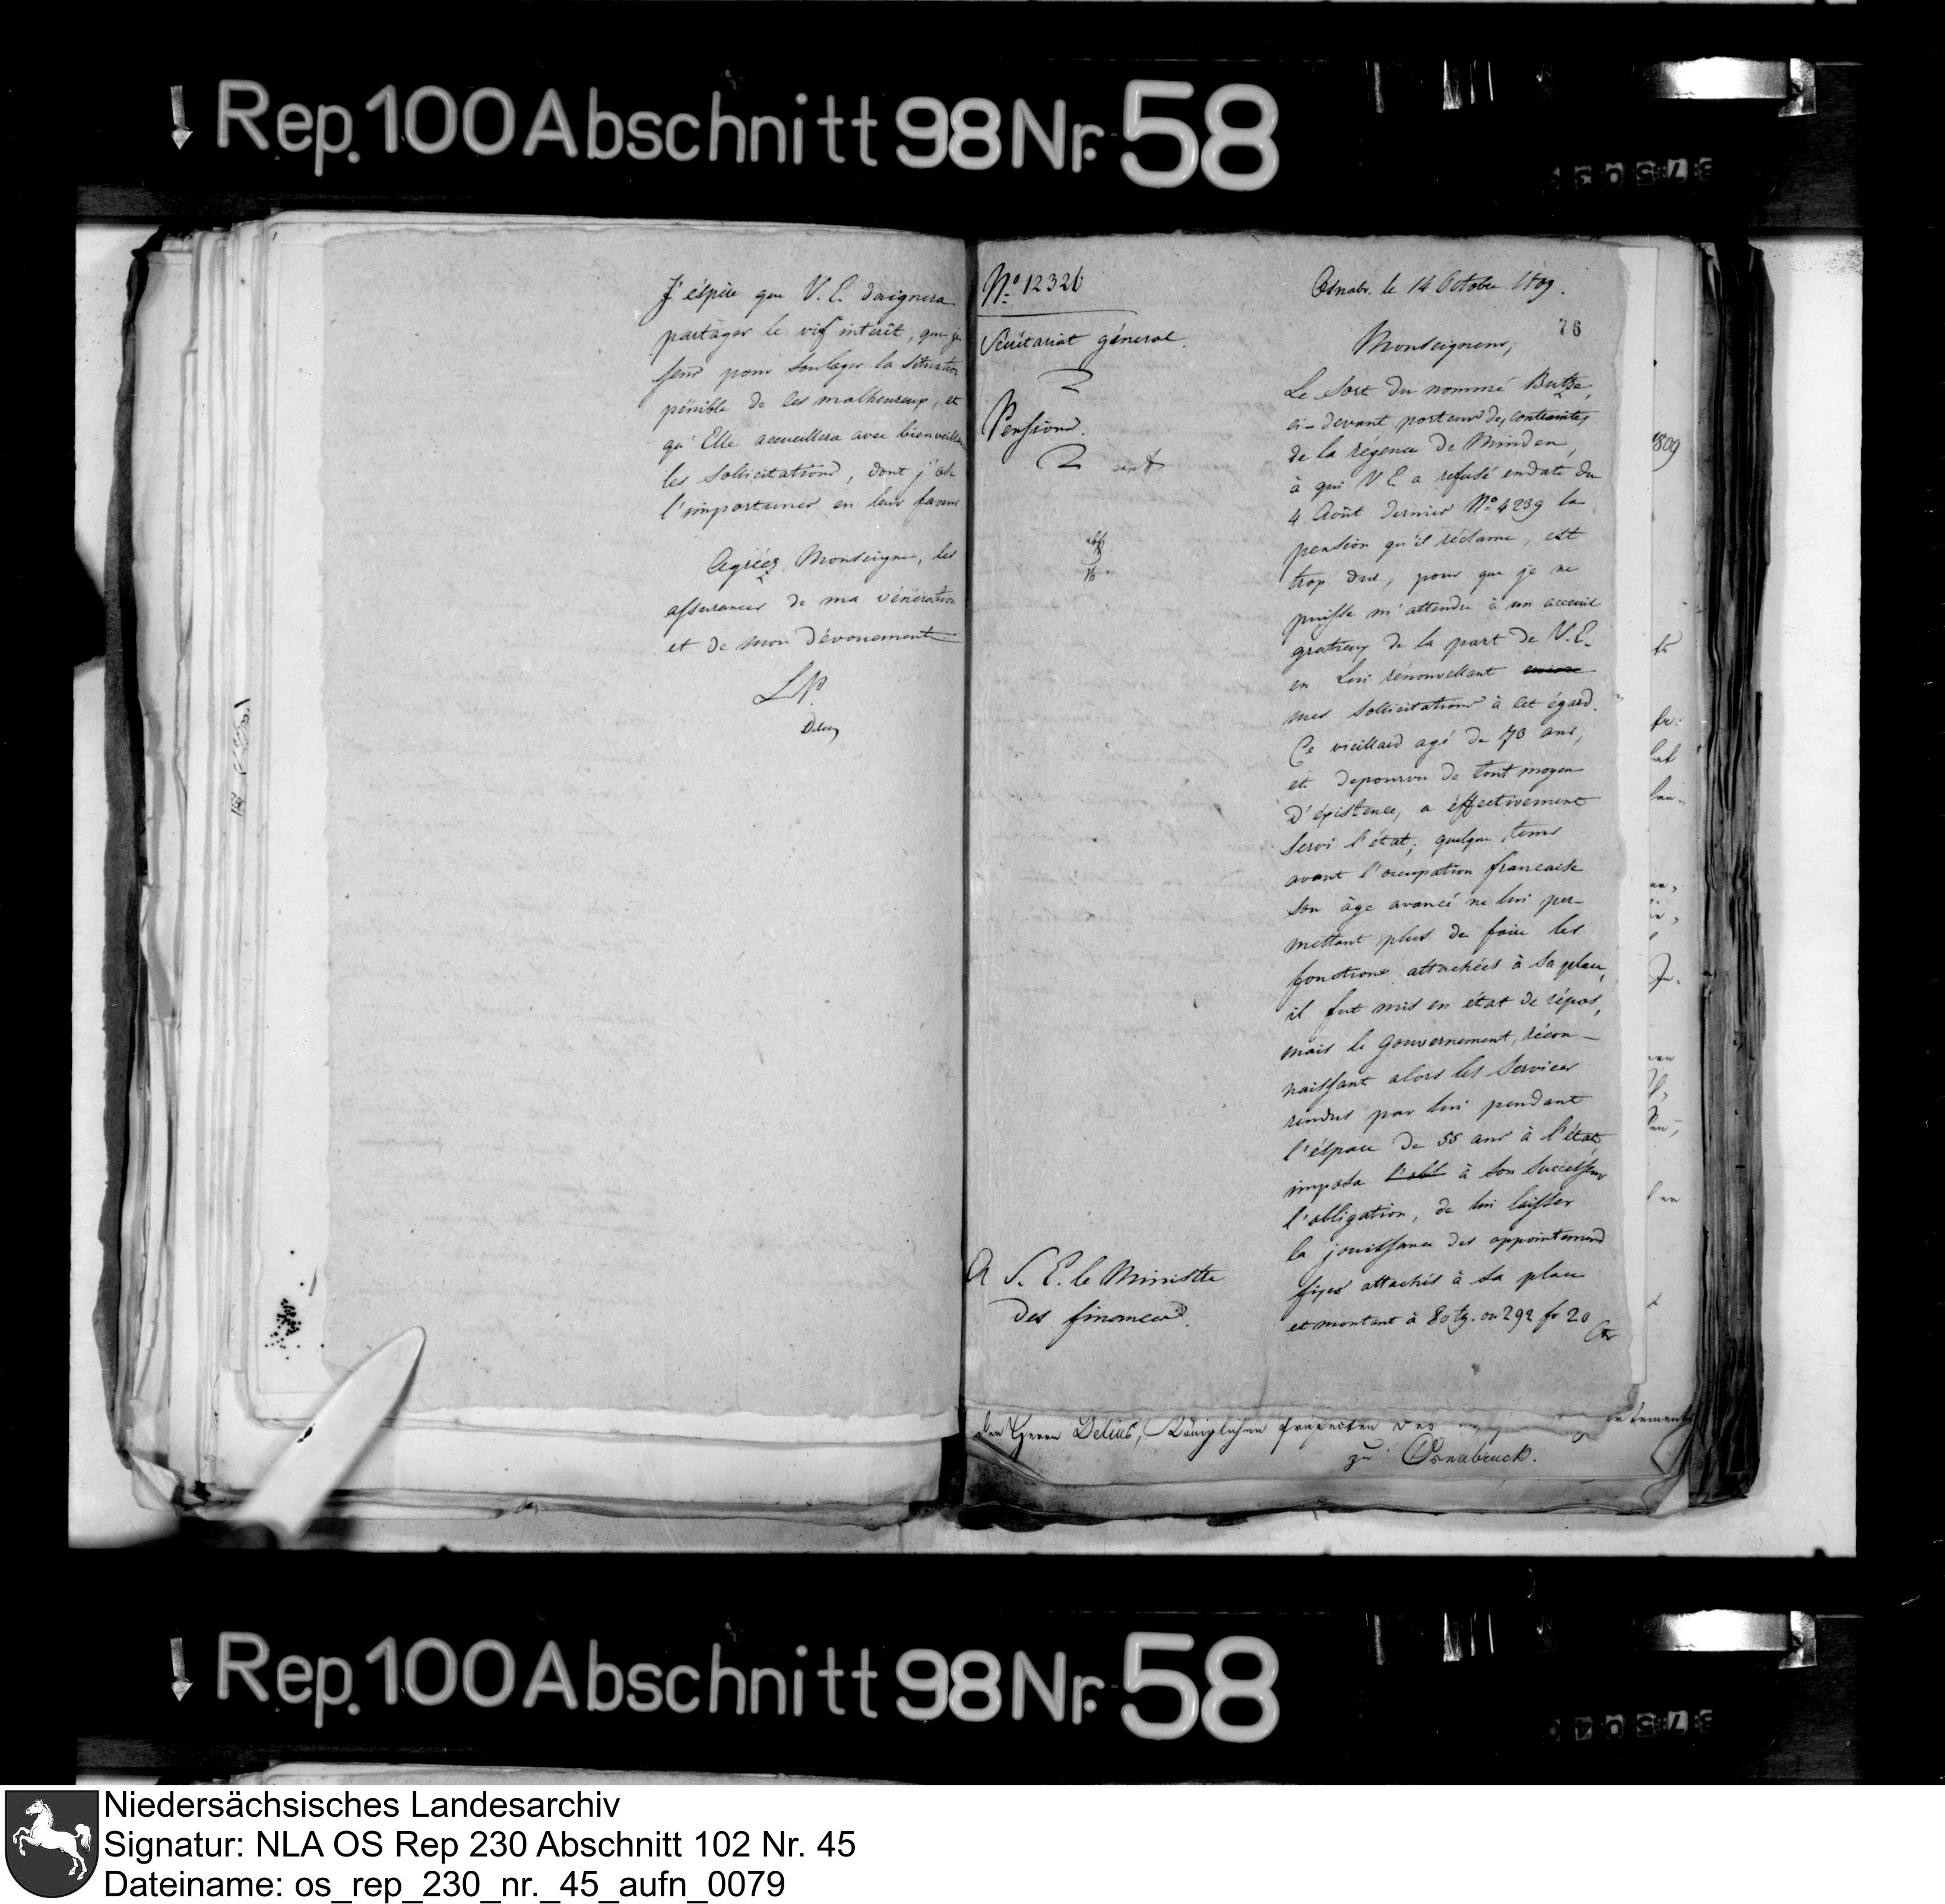 Rep. 100 Abschnitt 98 Nr. 58
J'éspère que V. E. daignera
partager le vif intérêt, que je
sens pour soulager la situation
pénible de ces malheureux, et
qu'Elle accueillera avec bienveillance
les sollicitations, dont j'ose
l'importuner en leur faveur
Agréez Monseigneur, les
assurances de ma vénération
et de mon dévouement
LP.
Delius
No 12326
Sécrétariat général.
Pensions.
A S. E. le Ministre
des finances.
Osnabr. le 14 Octobre 1809.
76
Monseigneur,
Le sort du nommé Butze,
ci-devant porteur de contraintes
de la régence de Minden,
à qui V E a refusé en date du
4 Août dernier No 4239 la
pension qu'il réclame, est
trop dur, pour que je ne
puisse m'attendre à un acceuil
gratieux de la part de V. E.
en Lui rénouvellant encore
mes sollicitations à cet égard.
Ce vieillard agé de 73 ans,
et depourvu de tout moyen
d'éxistence, a éffectivement
servi l'état; quelque tems
avant l'occupation francaise
son âge avancé ne lui per-
mettant plus de faire les
fonctions attachées à sa place,
il fut mis en état de répos,
mais le Gouvernement, récon-
naissant alors les services
rendus par lui pendant
l'éspace de 55 ans à l'état
imposa l'obl à son successeur
l'obligation, de lui laisser
la jouissance des appointemens
fixes attachés à sa place
et montant à 80 rg. ou 292 fr 20
Ctr
1809
den Herrn Delius, Königlichen Präfecten des
zu Osnabrück.
Rep. 100 Abschnitt 98 Nr. 58
Niedersächsisches Landesarchiv
Signatur: NLA OS Rep 230 Abschnitt 102 Nr. 45
Dateiname: os_rep_230_nr._45_aufn_0079